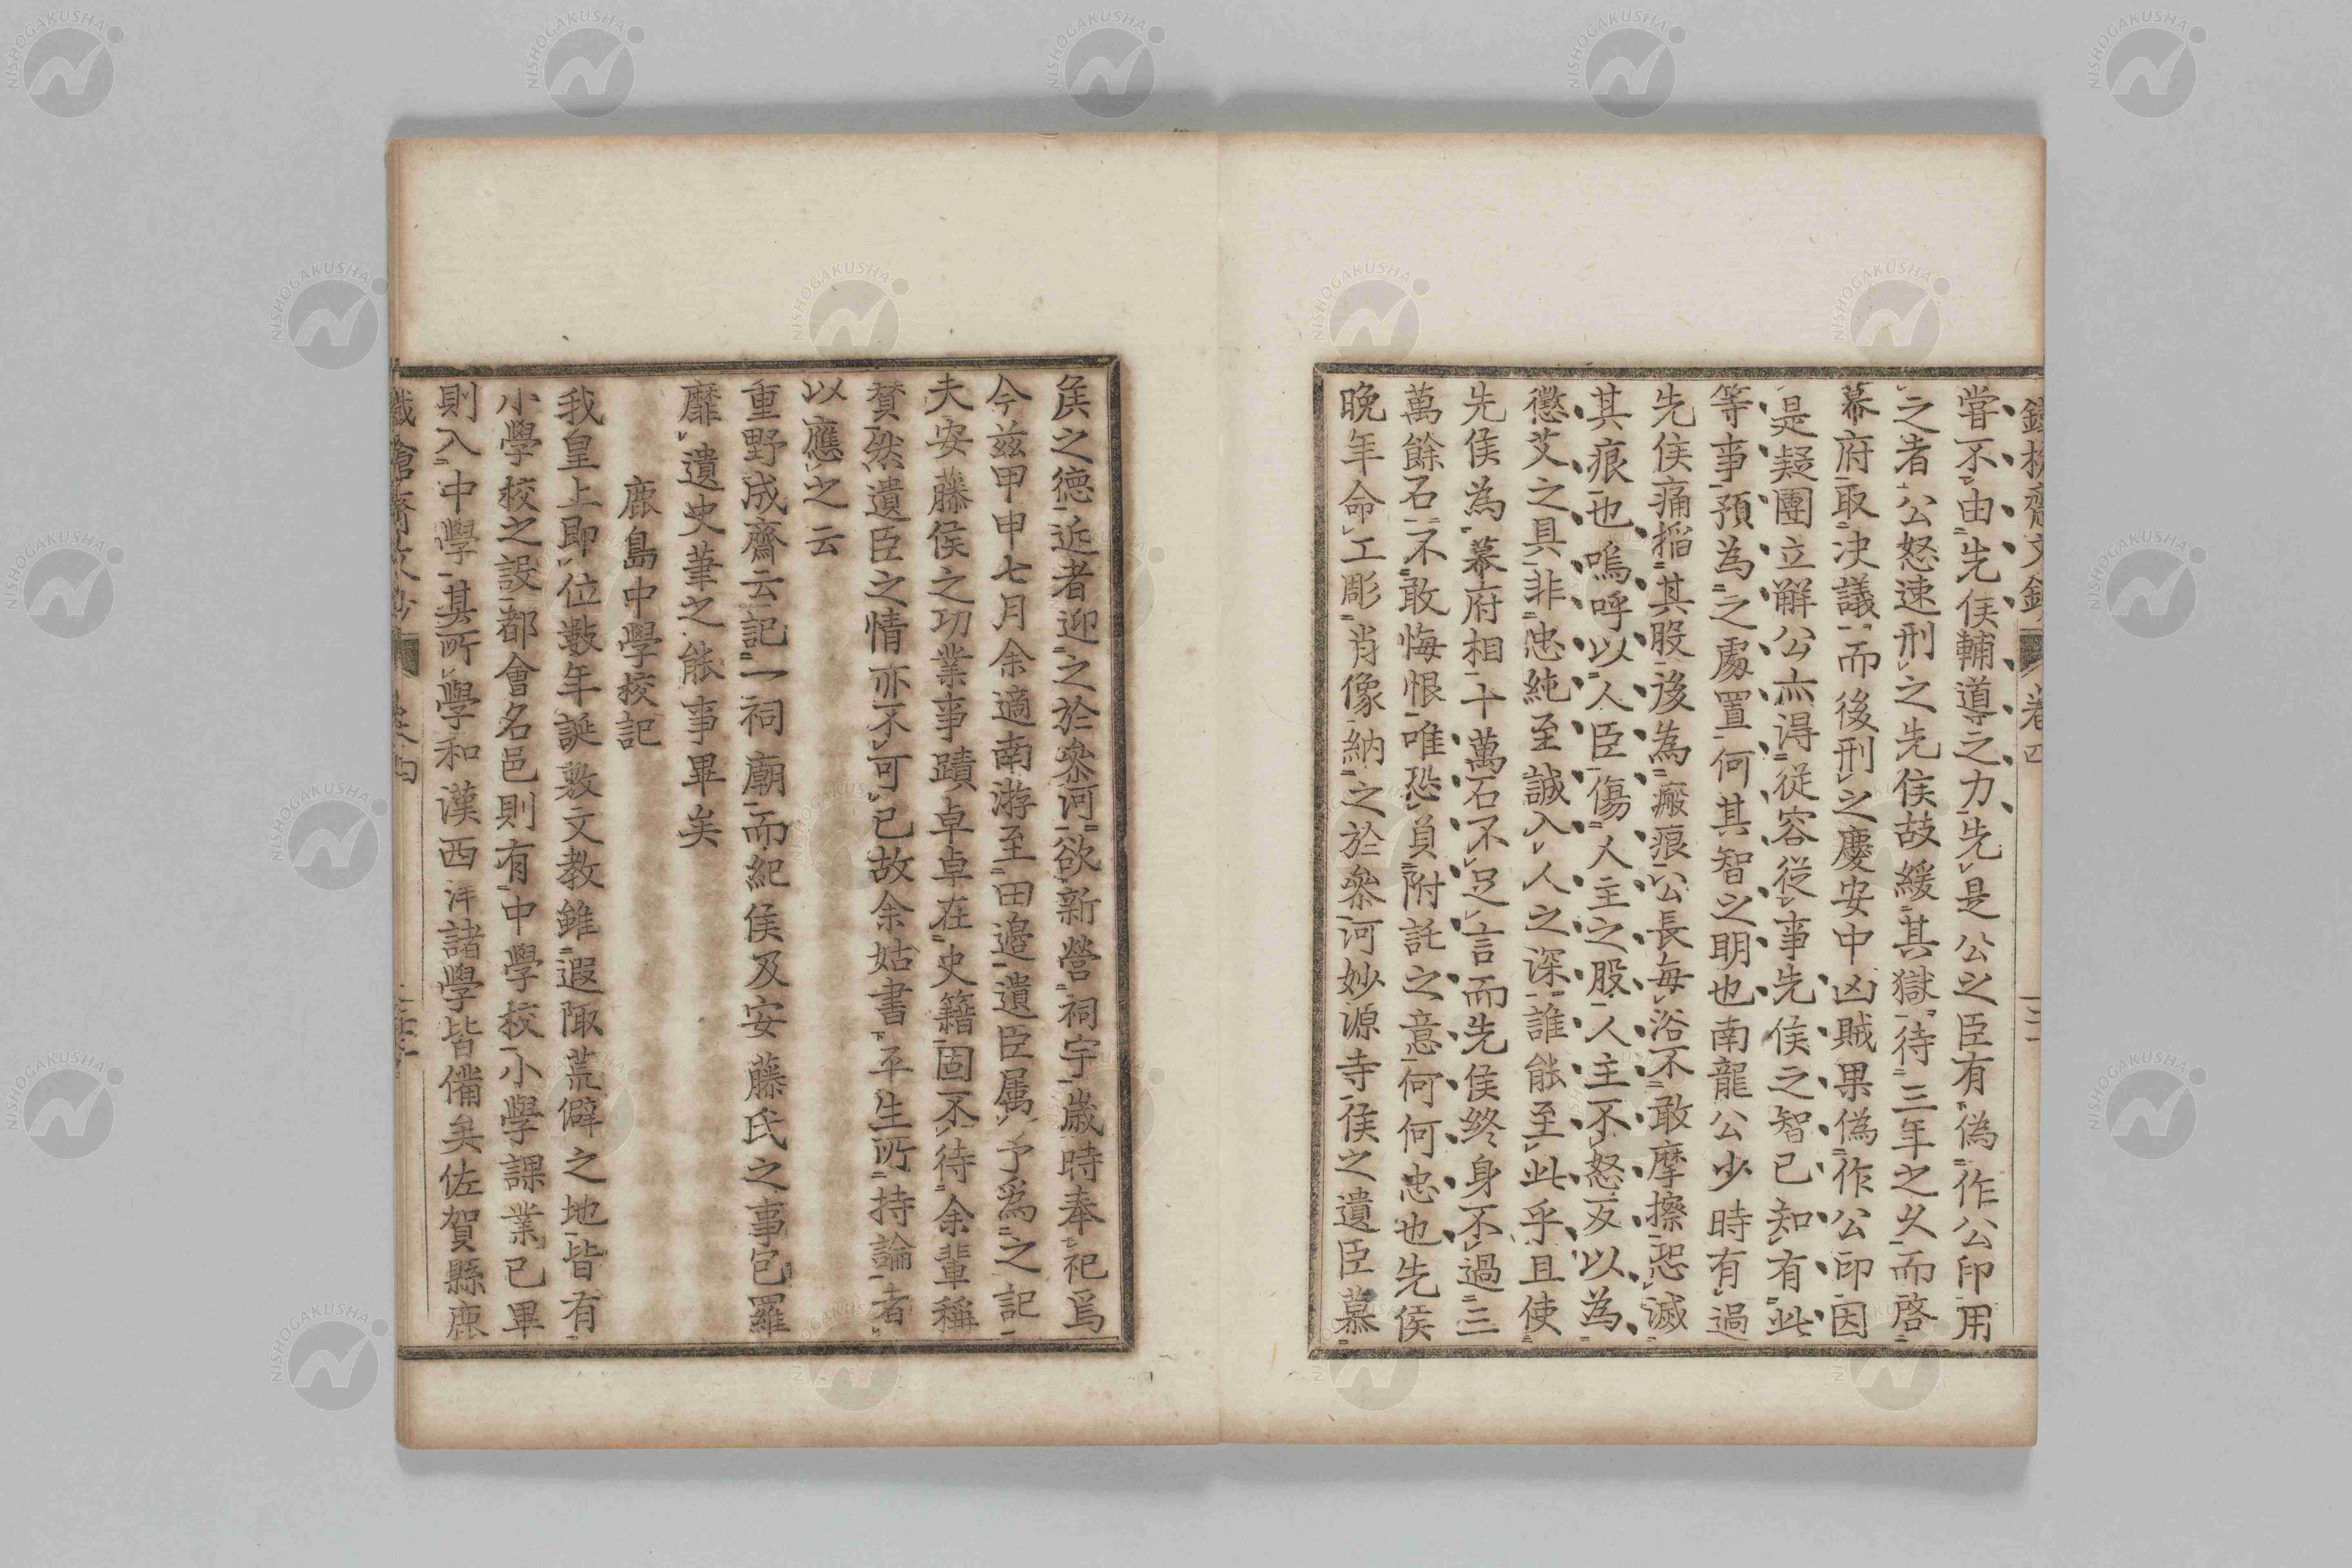 嘗不由先侯輔導之力先是公之臣有偽作公印用
之者公怒速刑之先侯故緩其獄待三年之久而啓
幕府取决議而後刑之慶安中凶賊果偽作公印因
是疑團立解公亦得從容從事先侯之智已知有此
等事預為之處置何其智之明也南龍公少時有過
先侯痛搯其股後為瘢痕公長每浴不敢摩擦恐滅
其痕也嗚呼以人臣傷人主之股人主不怒反以為
懲艾之具非忠純至誠入人之深誰能至此乎且使
先侯為幕府相十萬石不足言而先侯終身不過三
萬餘石不敢悔恨唯恐負附託之意何何忠也先侯
晩年命工彫肖像納之於參河妙源寺侯之遺臣慕
矦之德近者迎之於參河欲新營祠宇歲時奉祀焉
今茲甲申七月余適南游至田邉遺臣属予爲之記
夫安藤侯之功業事蹟卓卓在史籍固不待余輩稱
賛然遺臣之情亦不可已故余姑書平生所持論者
以應之云
重野成齋云記一祠廟而紀侯及安藤氏之事包羅
靡遺史筆之能事畢矣
鹿島中學校記
我皇上即位數年誕敷文教雖遐陬荒僻之地皆有
小學校之設都會名邑則有中學校小學課業已畢
則入中學其所學和漢西洋諸學皆備矣佐賀縣鹿